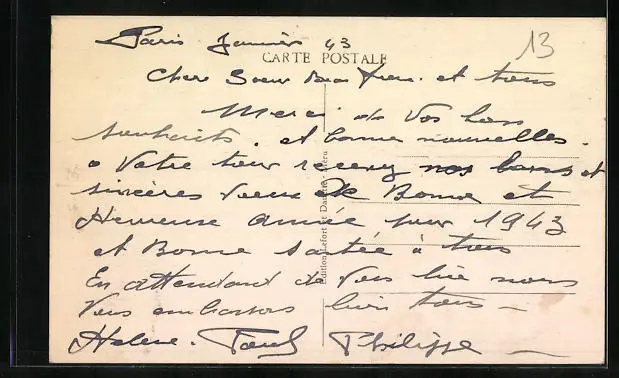 Paris Janvier 43
13
CARTE POSTALE
Chere Soeur Beau Frere. et tous
Merci de Vos bons
souhaits. et bonne nouvelles.
a Votre tour recevez nos bons et
sincères Voeux de Bonne et
Heureuse année pour 1943
et Bonne santée à tous
En attendant de Vous lire nous
Vous embrassons bien tous —
Helene. Philippe —
Edition Lefort et